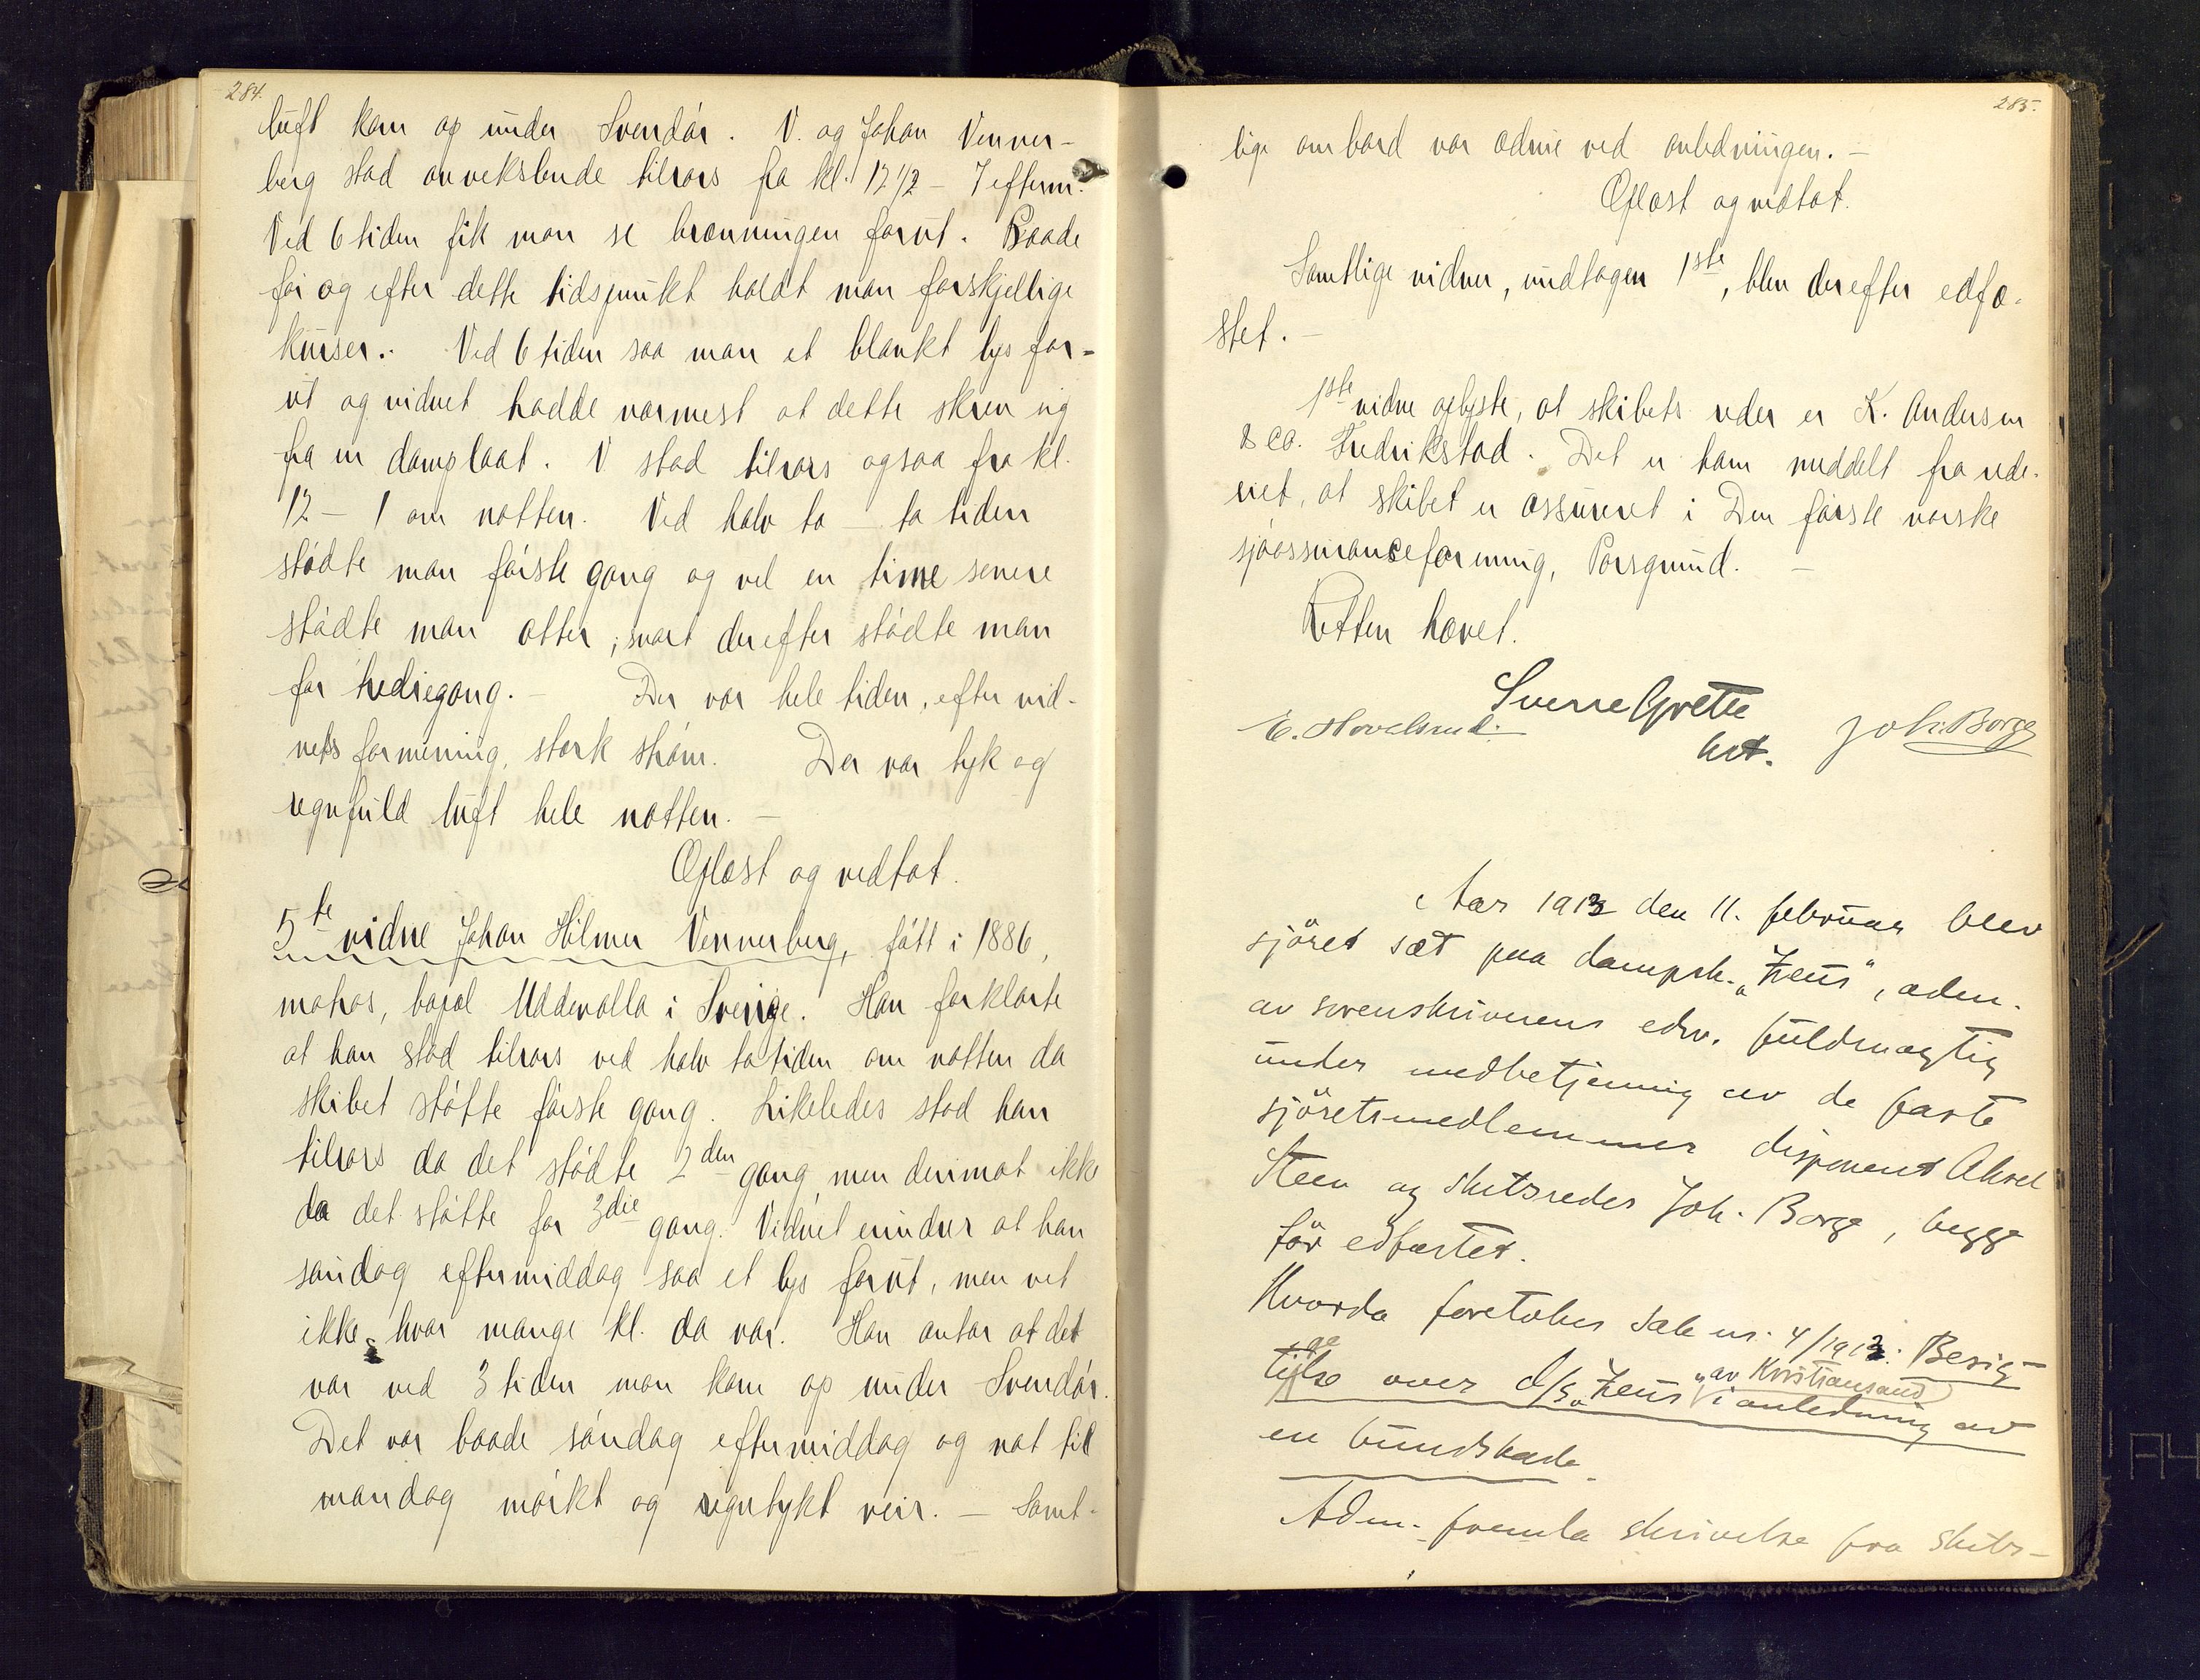 284.
luft kom op under Svendör. V. og Johan Venner-
berg stod avvekslende tilrors fra kl. 12 1/2 - 7 efterm.
Ved 6 tiden fik man se brænningen forut. Baade
før og efter dette tidspunkt holdt man forskjellige
kurser. Ved 6 tiden saa man et blankt lys for-
ut og vidnet hadde nærmest at dette skrev sig
fra en dampbaat. V. stod tilrors ogsaa fra kl.
12 - 1 om natten. Ved halv to - to tiden
stødte man første gang og vel en time senere
stødte man atter, snart derefter stødte man
for trediegang. - Der var hele tiden, efter vid-
nets formening, sterk strøm. Der var tyk og
regnfuld luft hele natten. -
Oplæst og vedtat.
5te vidne Johan Hilmer Vennerberg, født i 1886,
matros, bopæl Uddevalla i Sverige. Han forklarte
at han stod tilrors ved halv to tiden om natten da
skibet støtte første gang. Likeledes stod han
tilrors da det stødte 2den gang, men derimot ikke
da det støtte for 3die gang. Vidnet erindrer at han
søndag eftermiddag saa et lys forut, men vet
ikke hvor mange kl. da var. Han antar at det
var ved 3 tiden man kom op under Svendör.
Det var baade søndag eftermiddag og nat til
mandag mørkt og regntykt veir. - Samt-
285.
lige ombord var ædrue ved anledningen. -
Oplæst og vedtat.
Samtlige vidner, undtagen 1ste, blev derefter edfæ-
stet. -
1ste vidne oplyste, at skibets reder er K. Andersen
& co. Fredrikstad. Det er ham meddelt fra rede-
riet, at skibet er assureret i Den første norske
sjøassuranceforening, Porsgrund. -
Retten hævet.
Sverre Grette
E. Hovelsrud. Joh. Borge
kst.
Aar 1913 den 11. februar blev
sjöret sæt paa dampsk. "Zeus", adm.
av sorenskriverens edsv. fuldmægtig
under medbetjening av de faste
sjöretsmedlemmer disponent Aksel
Steen og skibsreder Joh. Borge, begge
för edfæstet.
Hvorda foretokes sak nr. 4/1913: Besig-
tigelse over d/s "Zeus" av Kristiansand i anledning av
en bundskade.
Adm. fremla skrivelse fra skibs-